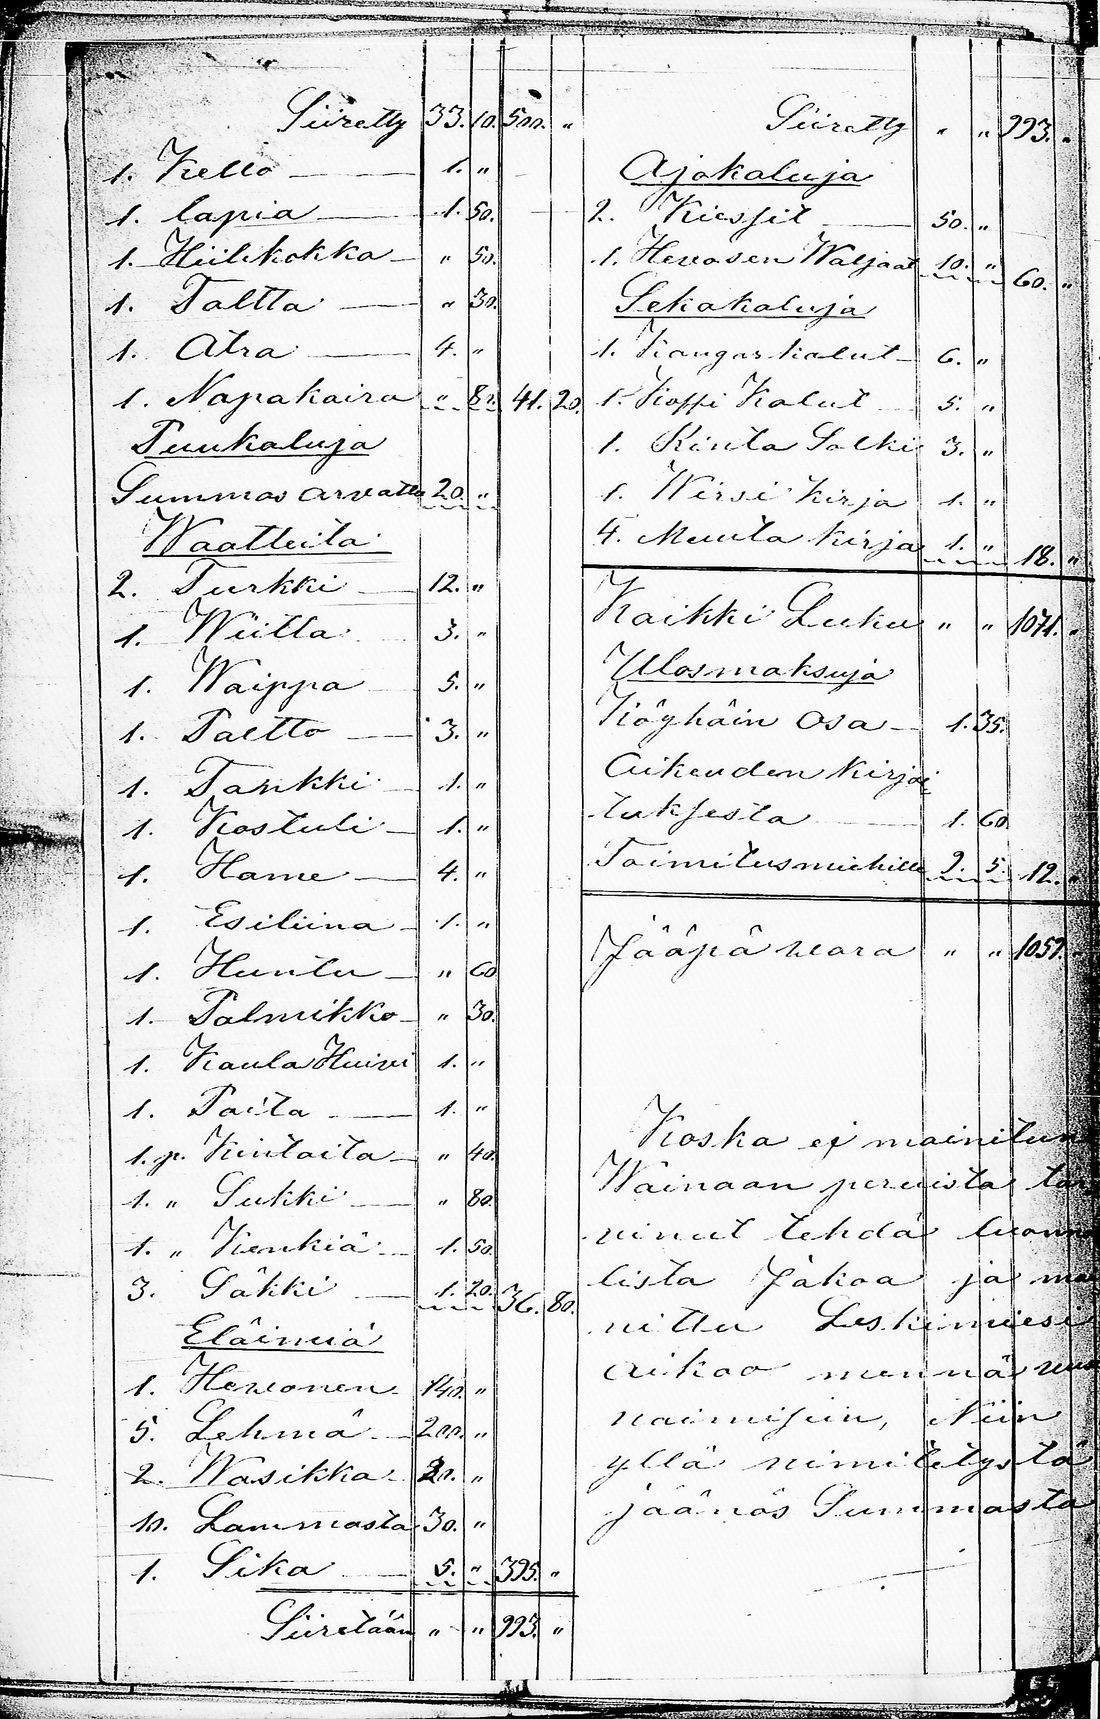 Siiretty 33. 10. 500. "
1. Kello 1. "
1. lapia 1. 50.
1. Hiilikokka " 50.
1. Taltta " 30.
1. Atra 4. "
1. Napakaira " 80. 41. 20.
Puukaluja
Summas arvattu 20. "
Waatteita
2. Turkki 12. "
1. Wiitta 3. "
1. Waippa 5. "
1. Paltto 3. "
1. Tankki 1. "
1. Kostuli 1. "
1. Hame 4. "
1. Esiliina 1. "
1. Huntu " 60
1. Palmikko " 30.
1. Kaula Huivi 1. "
1. Paita 1. "
1. p. Kintaita " 40.
1. " Sukki " 80.
1. " Kenkiä 1. 50.
3. Säkki 1. 20. 36. 80.
Eläimiä
1. Hevonen 140. "
5. Lehmä 200. "
2. Wasikka 20. "
10. Lammasta 30. "
1. Sika 5. " 395. "
Siiretään " " 993. "
Siiretty " " 993. "
Ajokaluja
2. Kiessit 50. "
1. Hevosen Waljaat 10. " 60. "
Sekakaluja
1. Kangas kalut 6. "
1. Koffi Kalut 5. "
1. Rinta Solki 3. "
1. Wirsi kirja 1. "
4. Muuta kirja 1. " 18. "
Kaikki Luku " " 1071. "
Ulosmaksuja
Köyhäin osa 1. 35.
Oikeuden kirjoi
tuksesta 1. 60
Toimitusmiehille 9. 5. 12. "
Jääpä wara " " 1059. "
Koska ej mainitun
Wainaan peruista
vinut tehdä
lista Jakoa ja
nittu Leskimiesi
aikoo mennä
naimisiin, Niin
yllä nimitetystä
jäänös Summasta